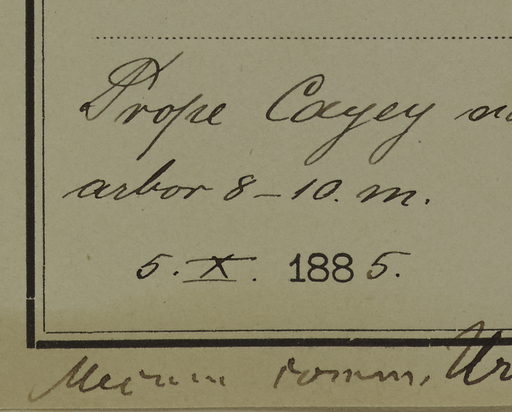 Prope Cayey
arbor 8–10. m.
5. X. 1885.
comm. Ur